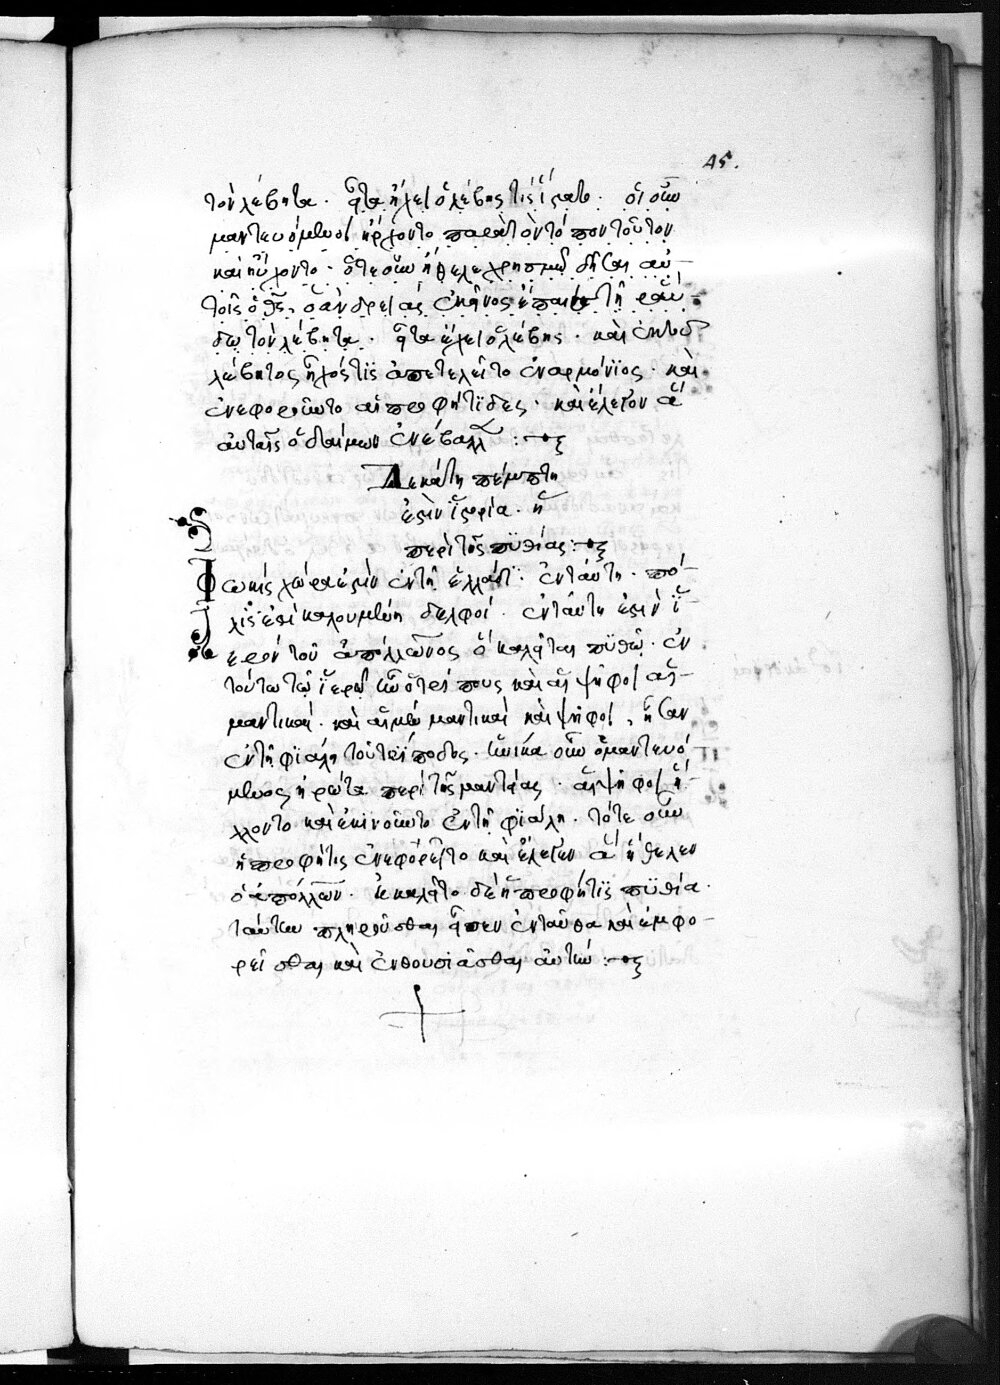 45.
τὸν λέβητα. εἶτα ἤχει ὁ λέβης τις ἵστατο. οἱ οὖν
μαντευόμενοι ἤρχοντο παρὰ τὸν τόπον τοῦτον
καὶ ηὔχοντο. ὅτε οὖν ἤθελε χρησμῷ δοῦναι αὐ-
τοῖς ὁ θεὸς, ὁ ἀνδριὰς ἐκεῖνος ἔπαιε τῇ ῥάβ
δω τὸν λέβητα. εἶτα ἤχει ὁ λέβης. καὶ ἐκ τοῦ
λέβητος ἦχός τϊς ἀπετελεῖτο ἐναρμόνϊος. καὶ
ἐνεφοροῦντο αἱ προφήτϊδες. καὶ ἔλεγον ἃ
αὐταῖς ὁ δαίμων ἐνέβαλλεν :
Δεκάτη πέμπτη
ἐστὶν ἱστορία. ἡ
περὶ τῆς πϋθίας :
Φωκὶς χώρα ἐστὶν ἐν τῇ ἑλλάδϊ. ἐν ταύτη. πό-
λϊς ἐστὶ καλουμένη δελφοί. ἐν ταύτη ἐστὶν ἱ-
ερὸν τοῦ ἀπόλλωνος ὃ καλεῖται πϋθώ. ἐν
τούτω τῷ ἱερῷ ἦν ὁ τρίπους καὶ αἱ ψῆφοι αἱ
μαντικαί. καὶ αἱ μὲν μαντικαὶ καὶ ψῆφοι, ἦσαν
ἐν τῇ φϊάλη τοῦ τρίποδος. ἡνίκα οὖν ὁ μαντευό-
μενος ἠρώτα περὶ τῆς μαντείας. αἱ ψῆφοι ἥ-
λλοντο καὶ ἐκινοῦντο ἐν τῇ φϊάλη. τότε οὖν
ἡ προφῆτις ἐνεφορεῖτο καὶ ἔλεγεν ἃ ἤθελεν
ὁ ἀπόλλων. ἐκαλεῖτο δὲ ἡ προφῆτϊς πϋθία.
ταύτην πληροῦσθαι εἶπεν ἐνταῦθα καὶ ἐμφο-
ρεῖσθαι καὶ ἐνθουσιᾶσθαι αὐτήν :